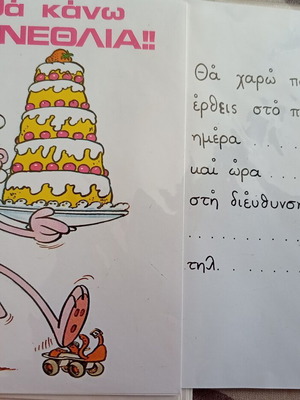 θὰ κάνω
ΝΕΘΛΙΑ!!
Θά χαρῶ
ἐρθεις στό
ἡμέρα . . . . . .
καί ὥρα . . . .
στή διεύθυνση
. . . . . . . . . .
τηλ. . . . . . . .